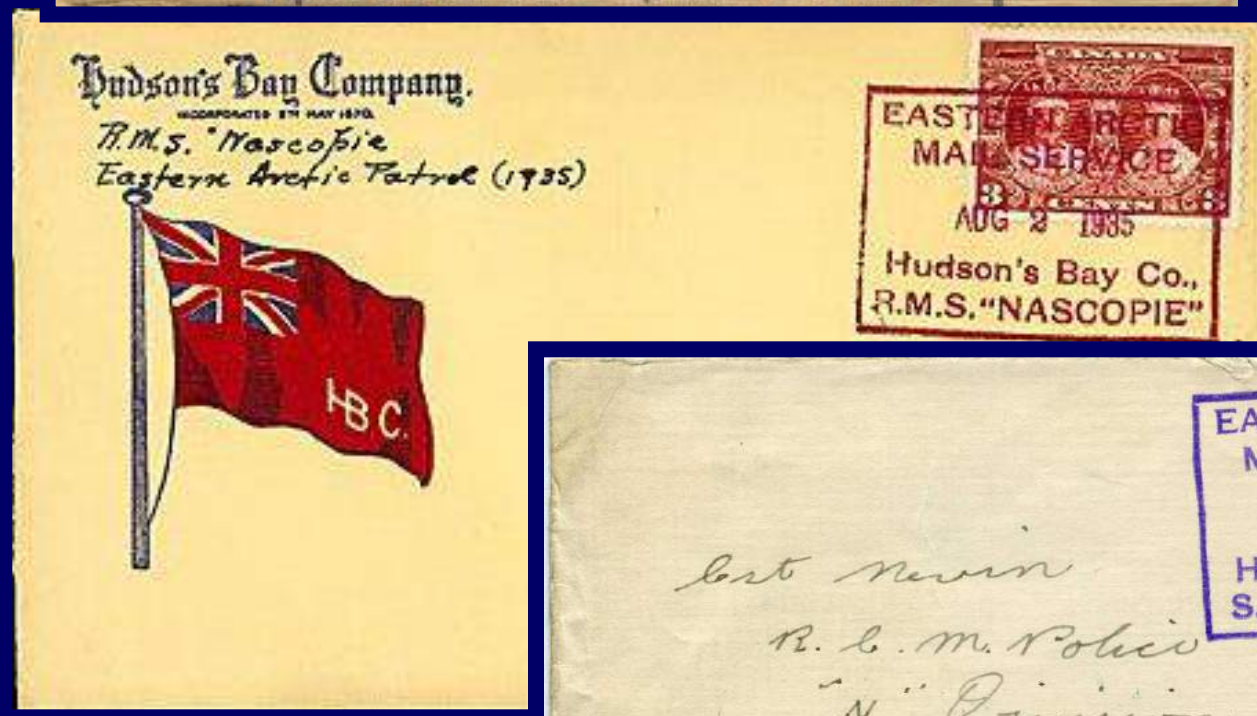 Hudson's Bay Company.
INCORPORATED 2ND MAY 1670.
R.M.S. "Nascopie
Eastern Arctic Patrol (1935)
HBC.
CANADA
3 CENTS 3
EASTERN ARCTI
MAIL SERVICE
AUG 2 1935
Hudson's Bay Co.,
R.M.S. "NASCOPIE"
EA
M
H
S.
Cst Nevin
R. C. M. Police
"N" Division